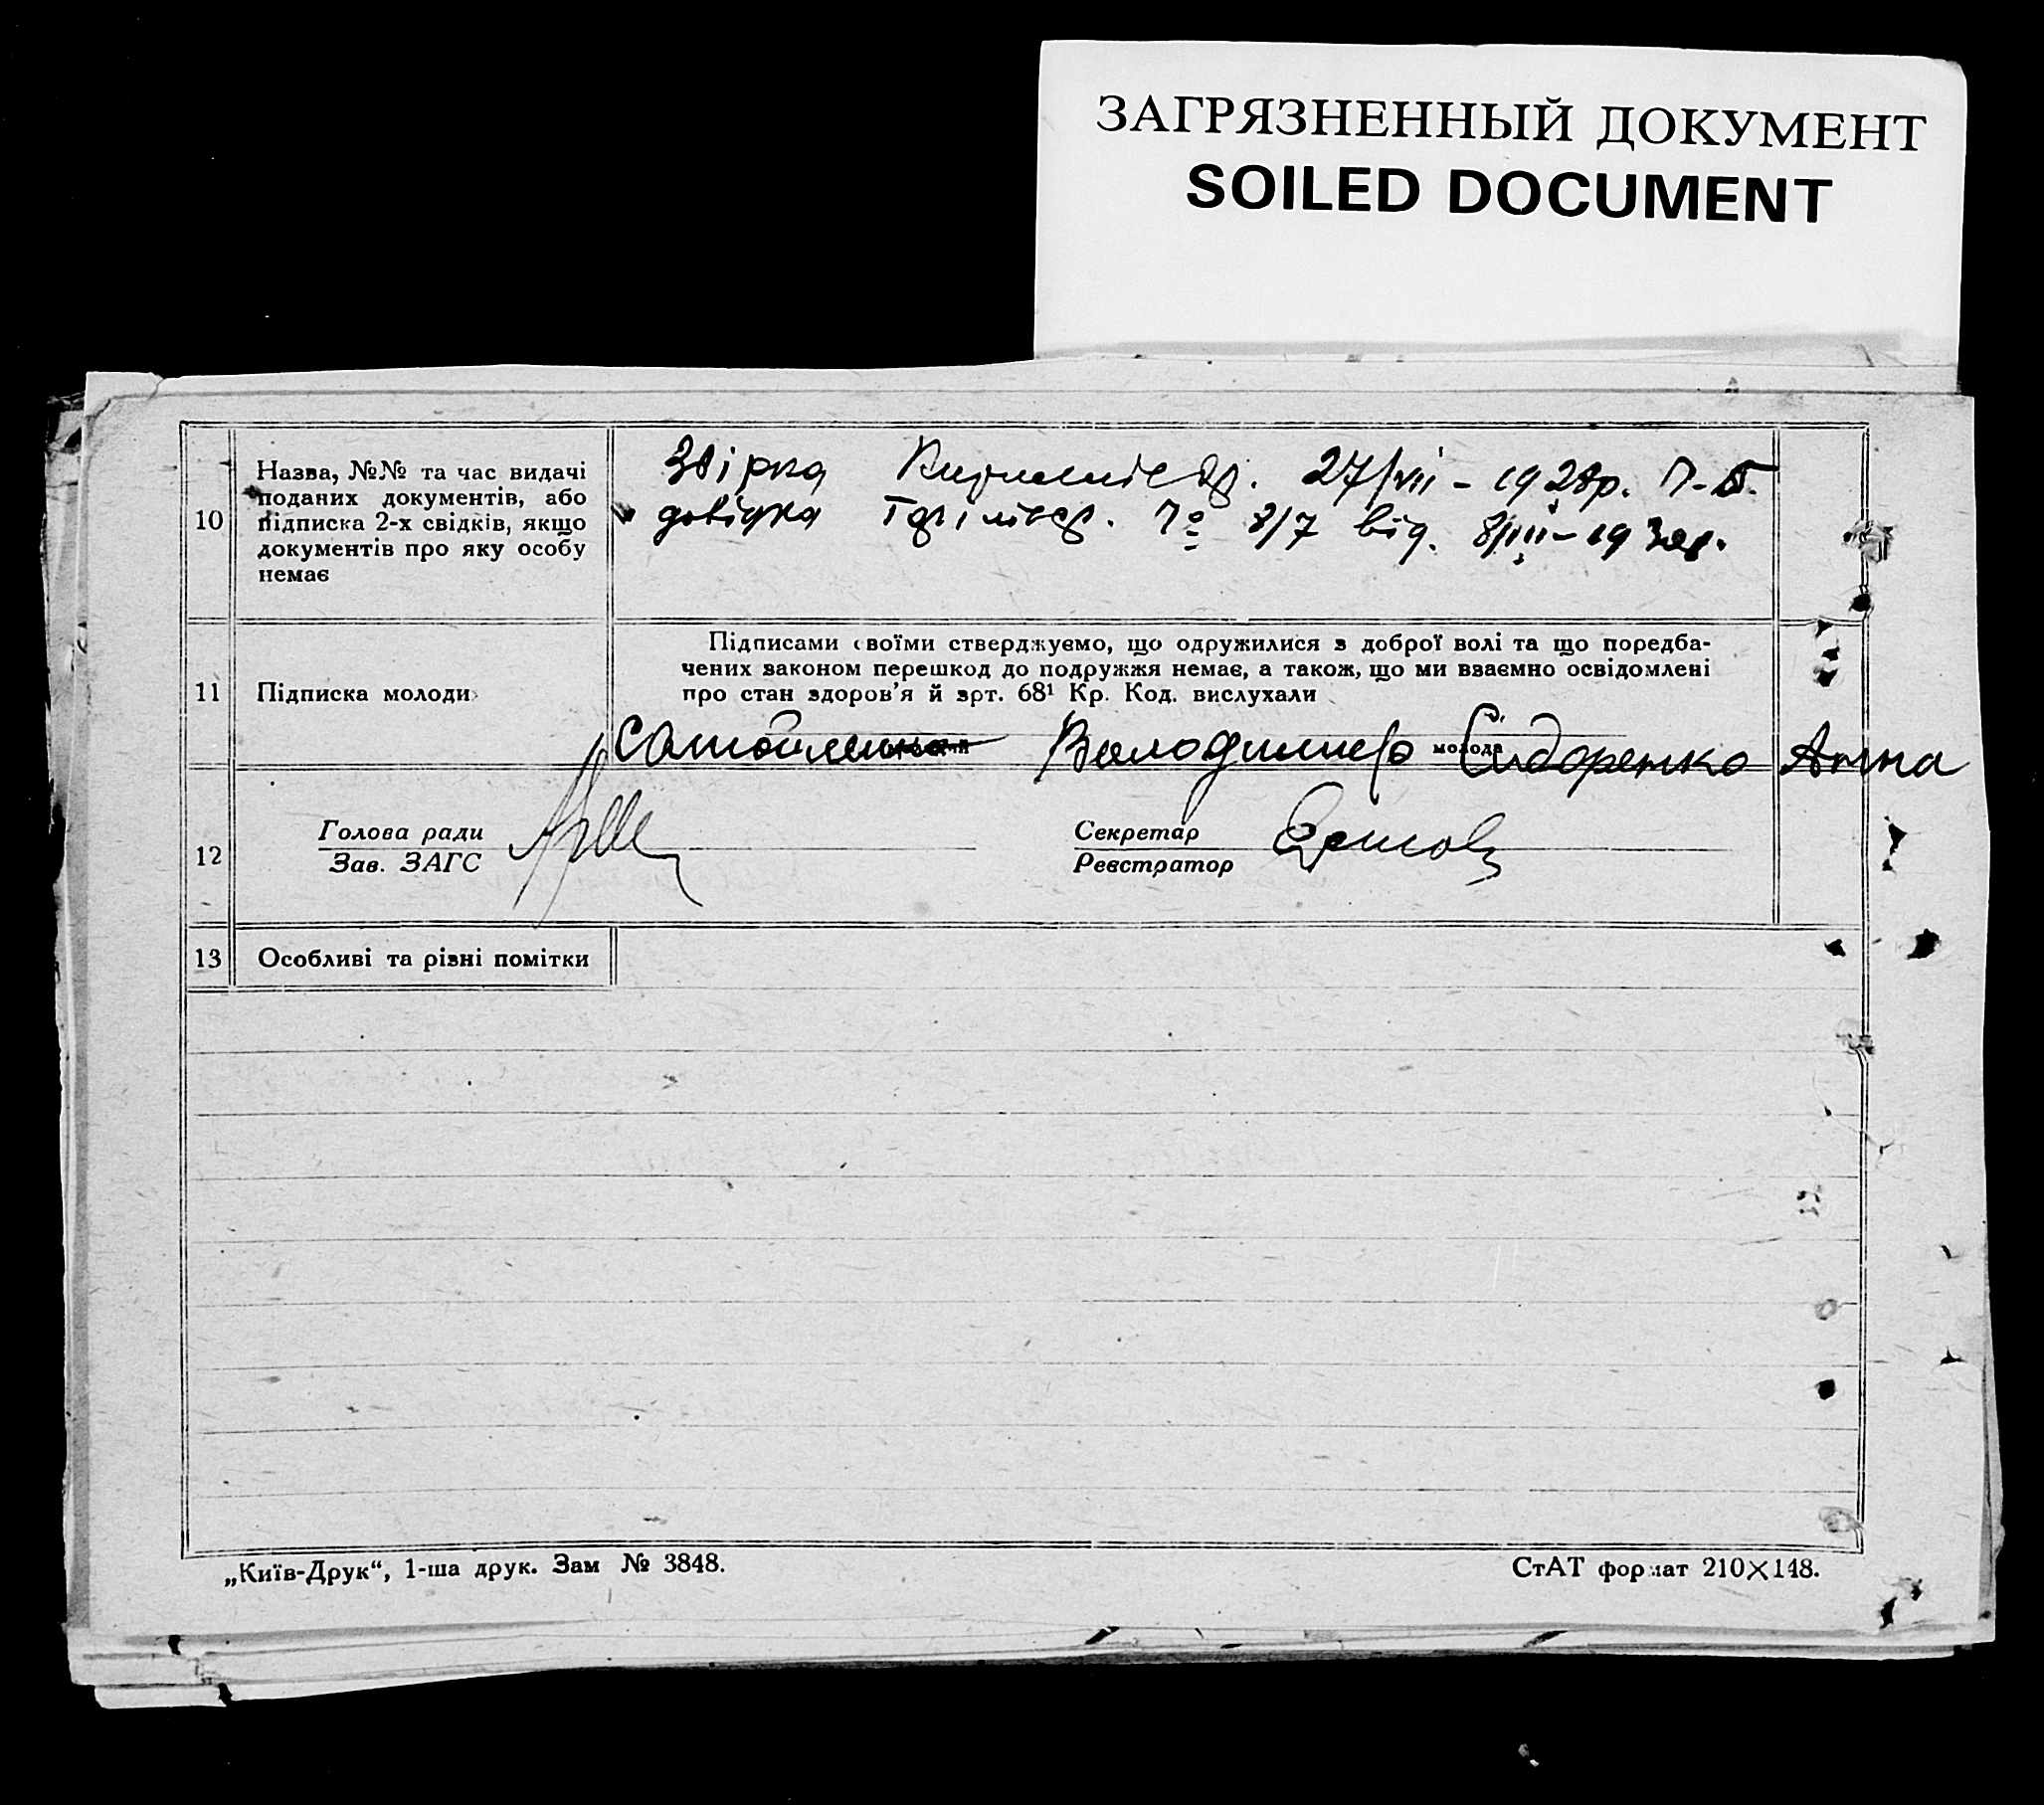 ЗАГРЯЗНЕННЫЙ ДОКУМЕНТ
SOILED DOCUMENT
10
Назва, №№ та час видачі
поданих документів, або
підписка 2-х свідків, якщо
документів про яку особу
немає
27/VII - 1928р.
довідка № 8/7 від.
11
Підписка молоди
Підписами своїми стверджуємо, що одружилися з доброї волі та що поредба-
чених законом перешкод до подружжя немає, а також, що ми взаємно освідомлені
про стан здоров'я й врт. 68¹ Кр. Код. вислухали
Самойленко Володимир молода Сидоренко Анна
12
Голова ради
Зав. ЗАГС
Секретар
Реєстратор
13
Особливі та різні помітки
„Київ-Друк“, 1-ша друк. Зам № 3848.
СтАТ формат 210×148.